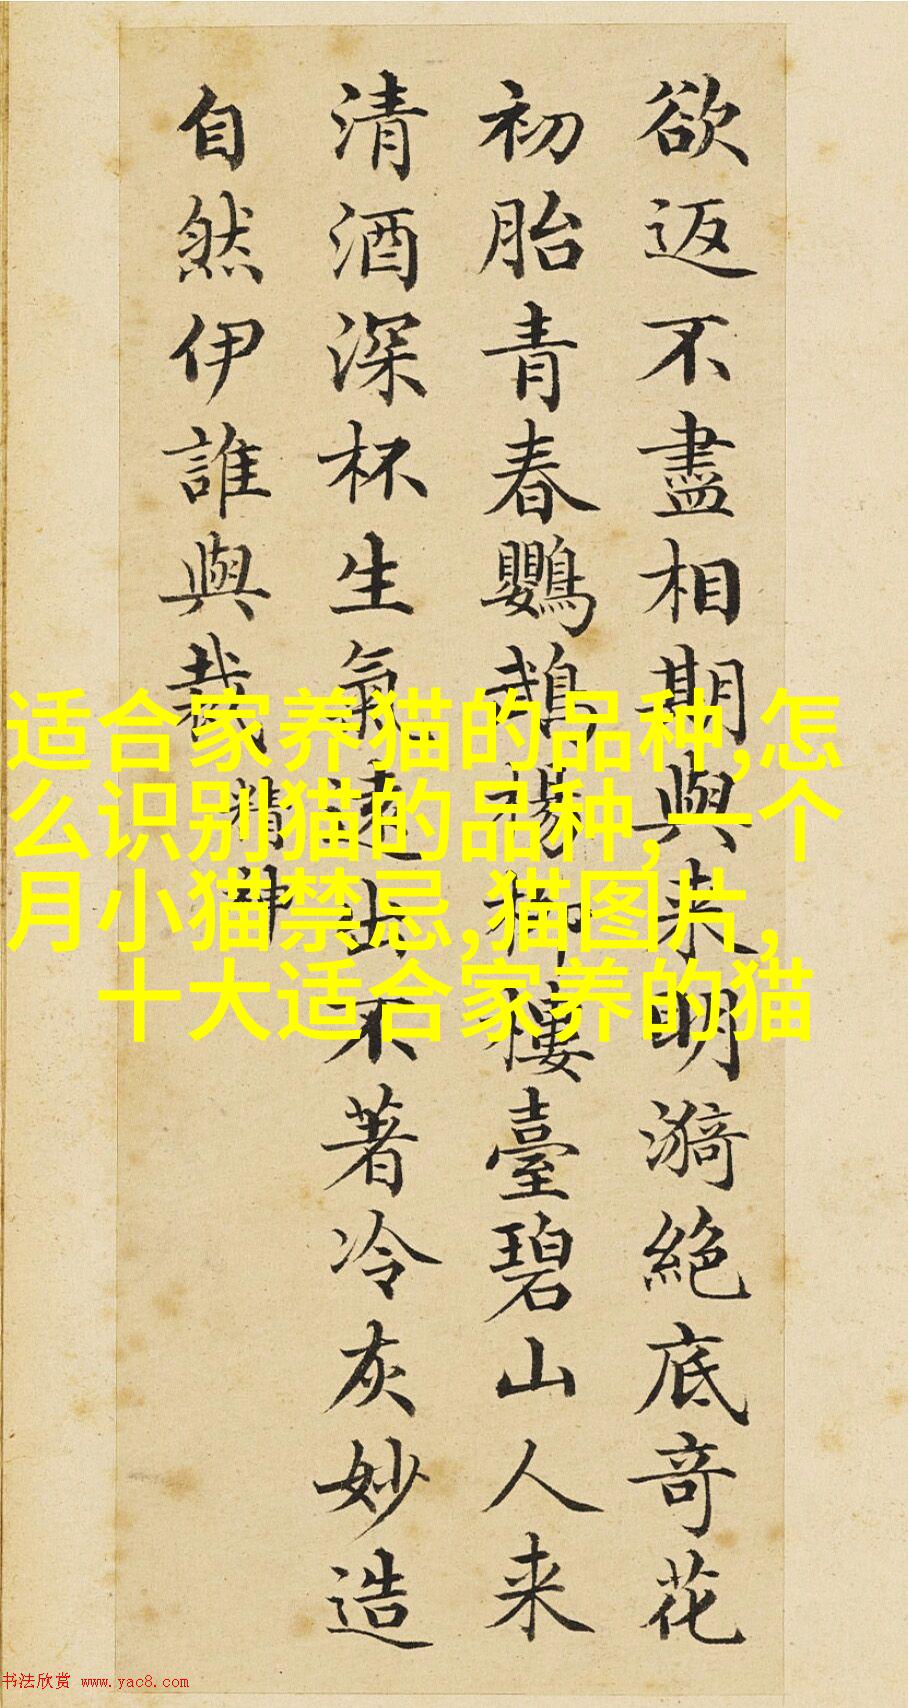 欲返不盡相期與来明漪絶底奇花
初胎青春鸚鵡楊柳樓臺碧山人来
清酒深杯生氣遠出不著冷灰妙造
自然伊誰與裁 精神
适合家养猫的品种,怎
么识别猫的品种,一个
月小猫禁忌,猫图片,
十大适合家养的猫
书法欣赏 www.yac8.com